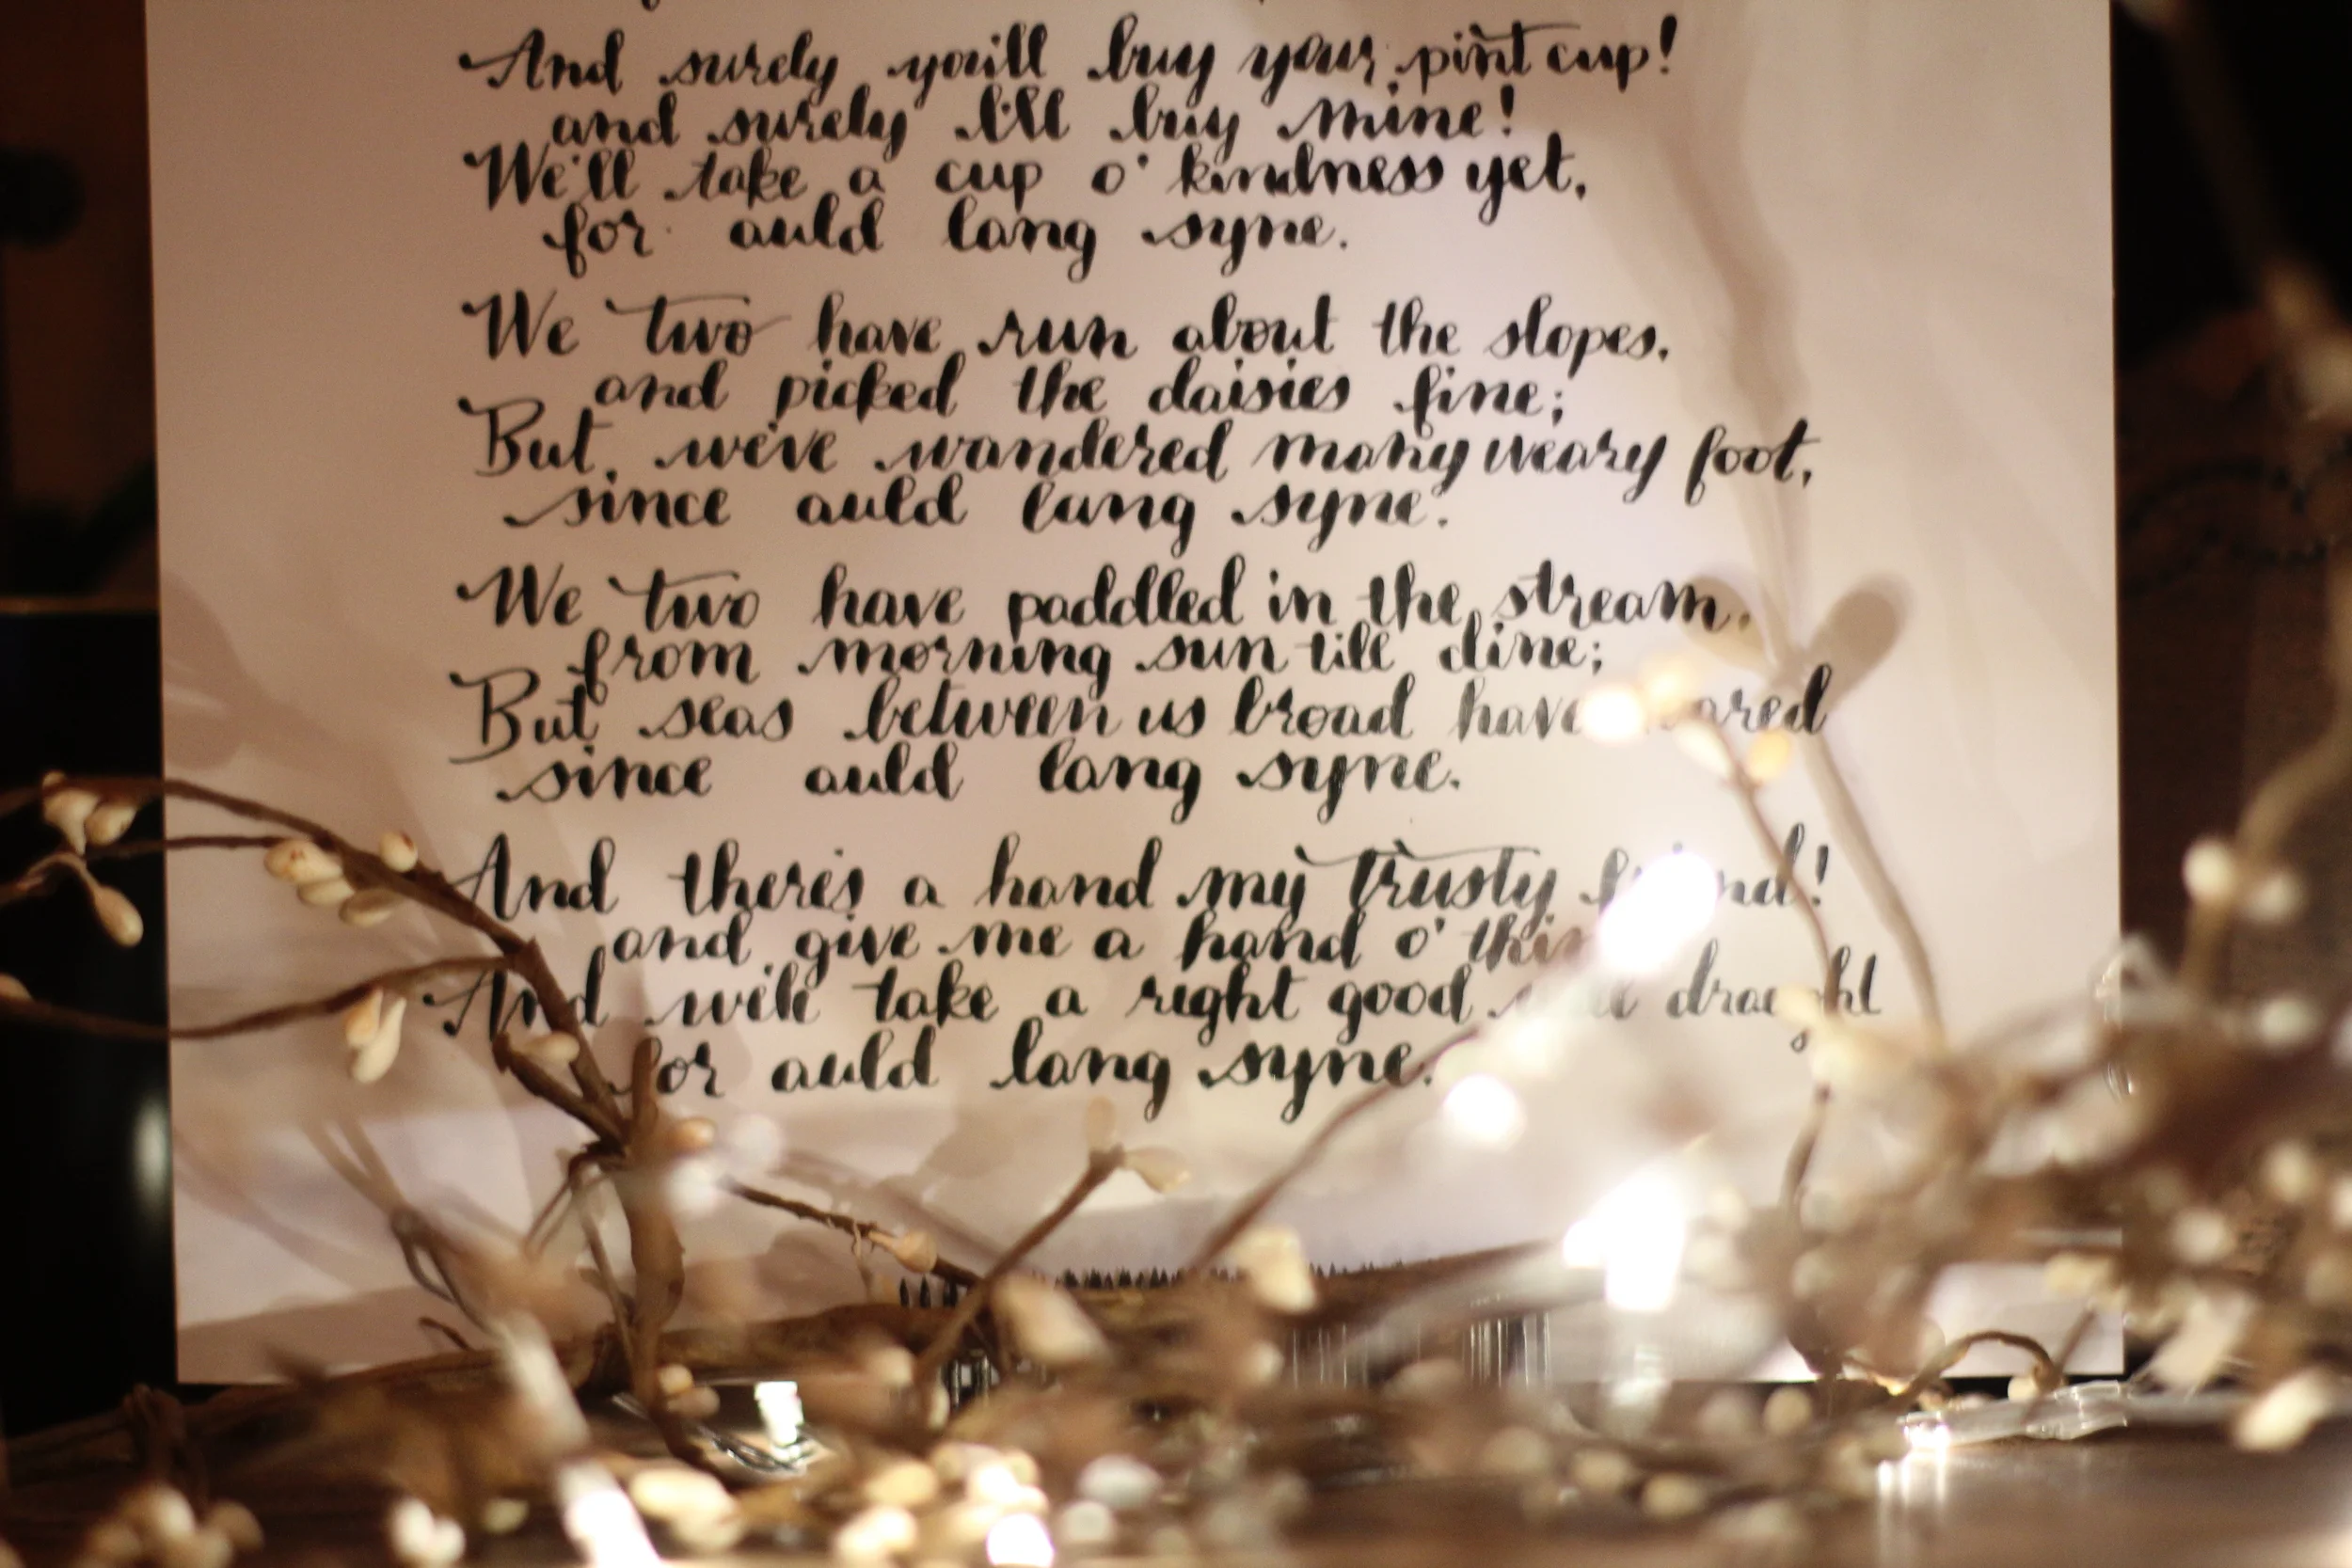 And surely you'll buy your pint cup!
and surely I'll buy mine!
We'll take a cup o' kindness yet,
for auld lang syne.
We two have run about the slopes,
and picked the daisies fine;
But, we've wandered many weary foot,
since auld lang syne.
We two have paddled in the stream,
from morning sun till dine;
But seas between us broad have
since auld lang syne.
And there's a hand my trusty friend!
and give me a hand o' thine
And we'll take a right good draught
for auld lang syne.